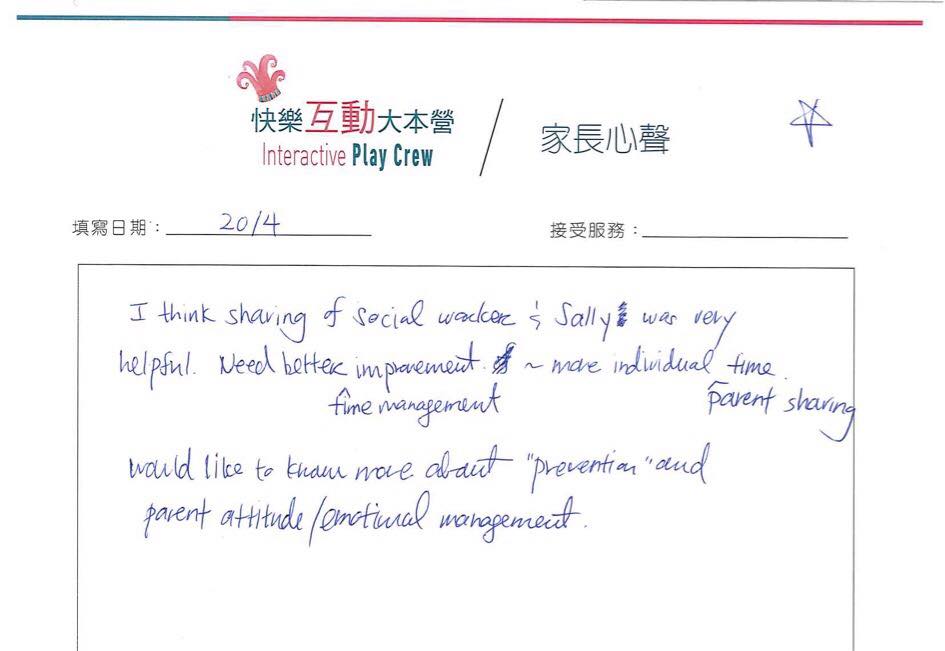 快樂互動大本營
Interactive Play Crew
家長心聲
填寫日期：20/4
接受服務：
I think sharing of social worker & Sally was very
helpful. Need better improvement. ~ more individual time.
^time management
^parent sharing
would like to know more about "prevention" and
parent attitude/emotional management.